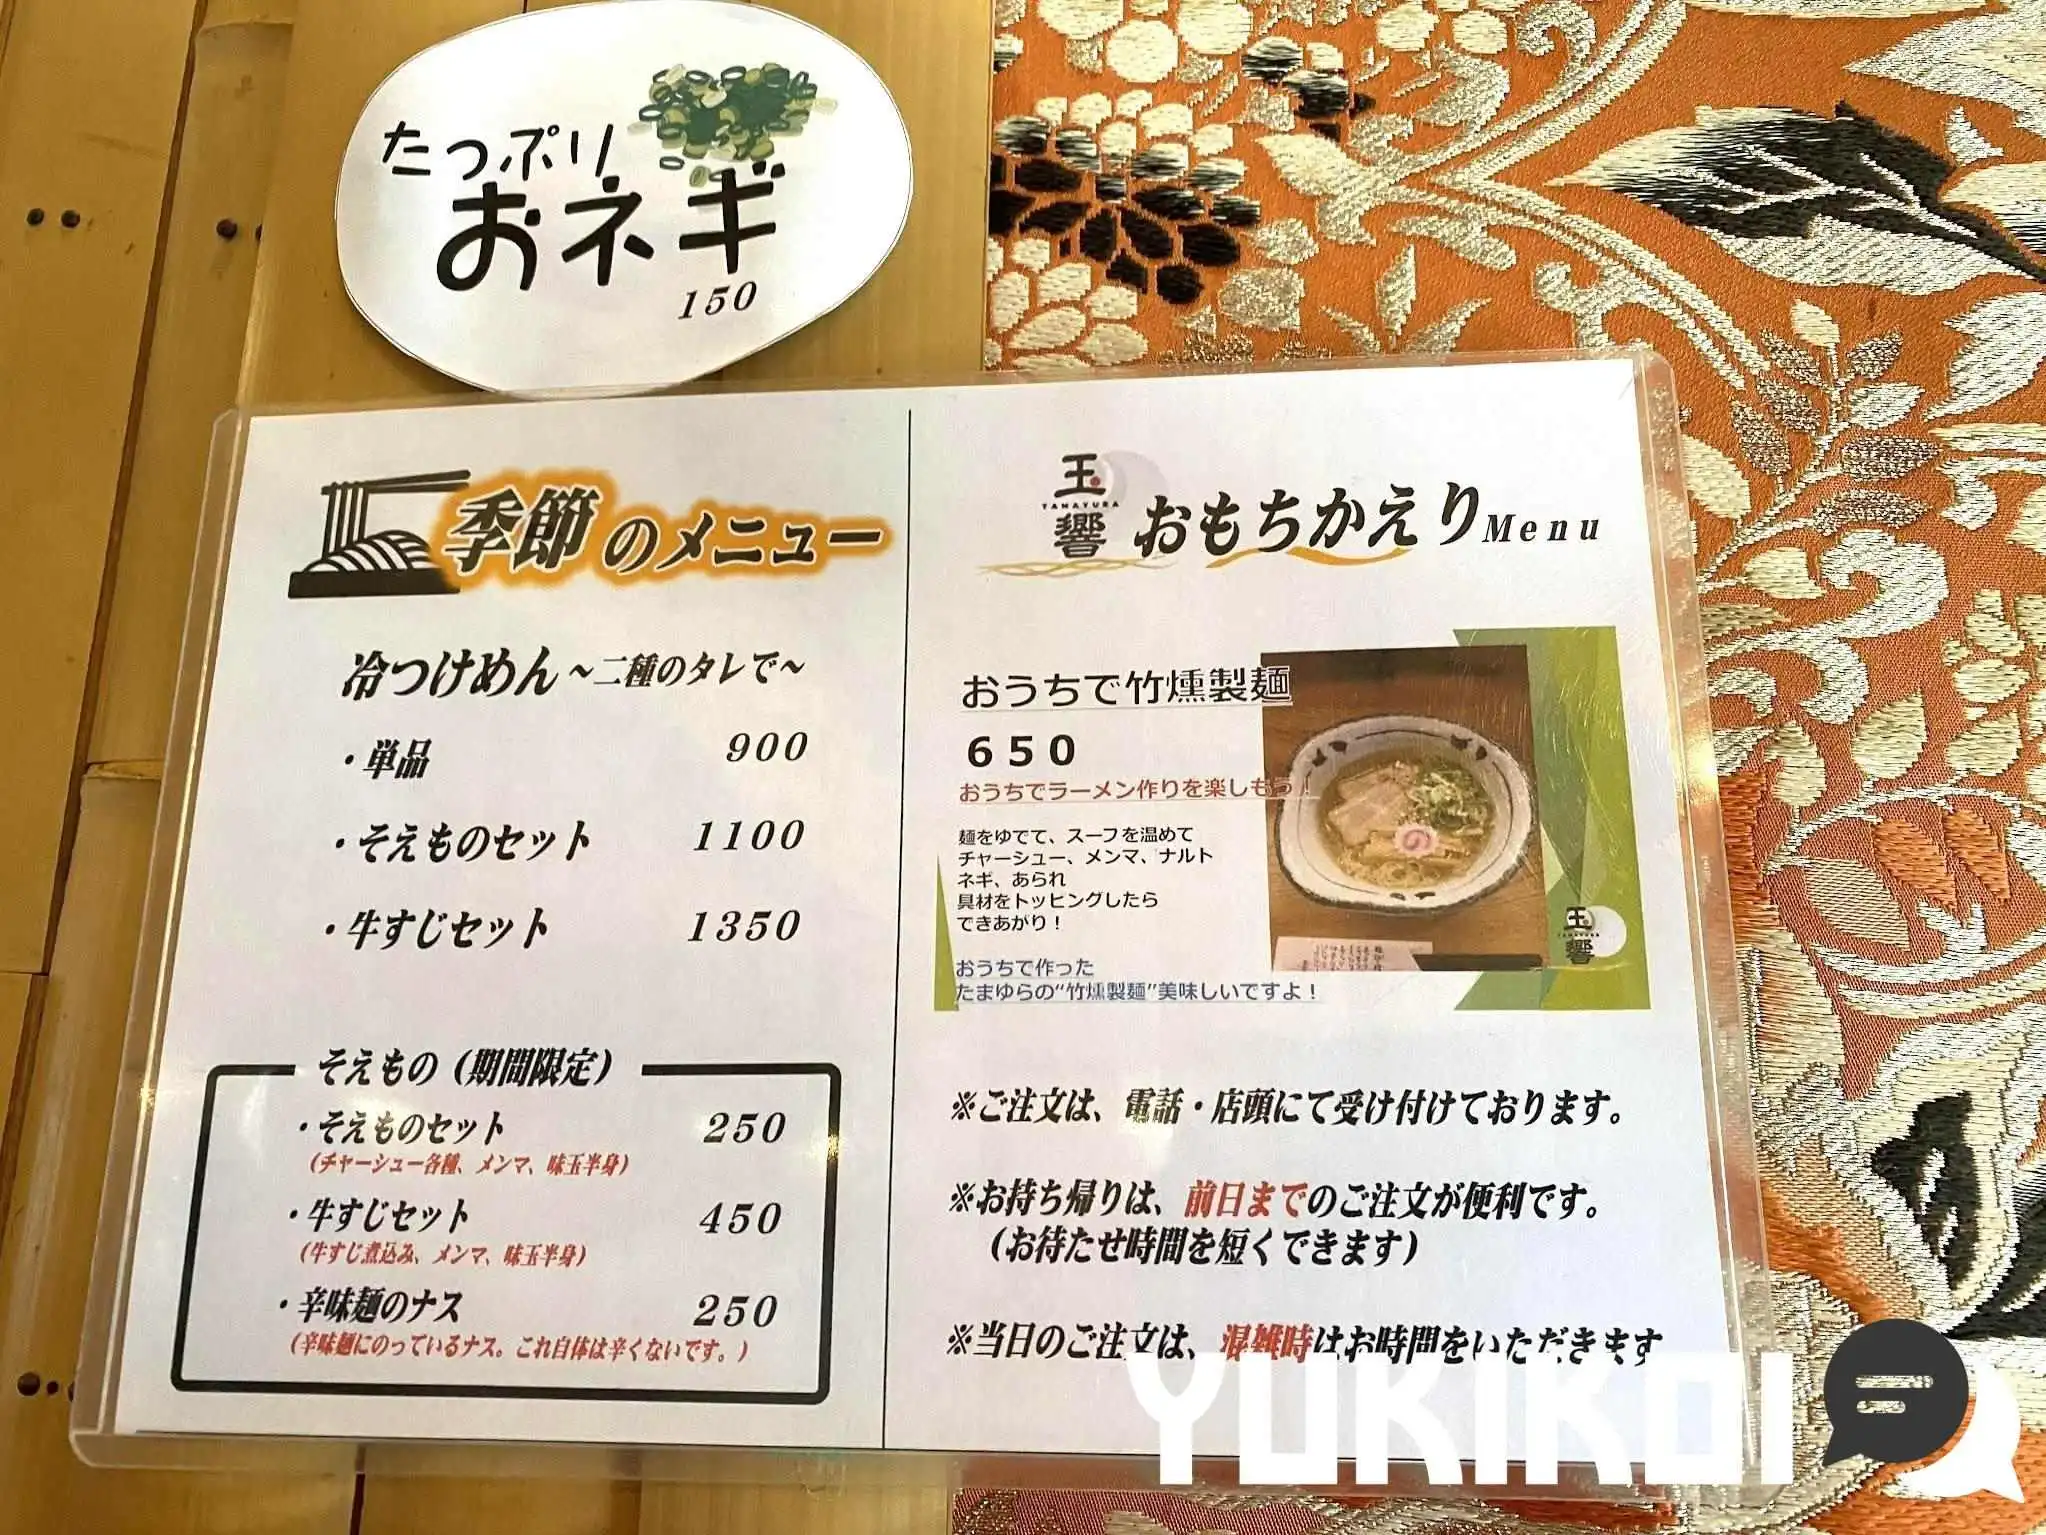 たっぷり
おネギ
150
季節のメニュー
冷つけめん～二種のタレで～
・単品 900
・そえものセット 1100
・牛すじセット 1350
そえもの（期間限定）
・そえものセット 250
（チャーシュー各種、メンマ、味玉半身）
・牛すじセット 450
（牛すじ煮込み、メンマ、味玉半身）
・辛味麺のナス 250
（辛味麺にのっているナス。これ自体は辛くないです。）
玉
TAMAYURA
響
おもちかえりMenu
おうちで竹燻製麺
650
おうちでラーメン作りを楽しもう！
麺をゆでて、スープを温めて
チャーシュー、メンマ、ナルト
ネギ、あられ
具材をトッピングしたら
できあがり！
おうちで作った
たまゆらの“竹燻製麺”美味しいですよ！
玉
TAMAYURA
響
※ご注文は、電話・店頭にて受け付けております。
※お持ち帰りは、前日までのご注文が便利です。
（お待たせ時間を短くできます）
※当日のご注文は、混雑時はお時間をいただきます
YUKIKOI